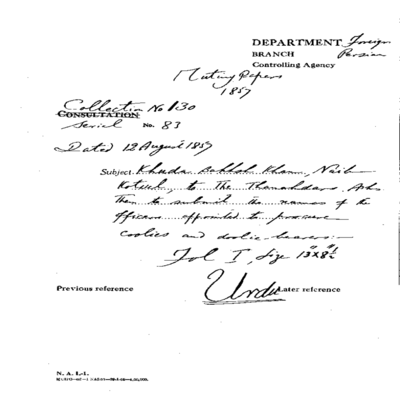 DEPARTMENT Foreign
BRANCH Persian
Controlling Agency
Mutiny Papers
1857
Collection No 130
CONSULTATION
Serial No. 83
Dated 12 August 1857
Subject Khuda Bakhsh Khan, Naib
Kotwal, to The Thanahdars. Asks
Them to submit the names of the
officers appointed to procure
coolies and doolie-bearers:-
Fol I, Size 13"x8½"
Previous reference
Urdu
Later reference
N. A. I.-1.